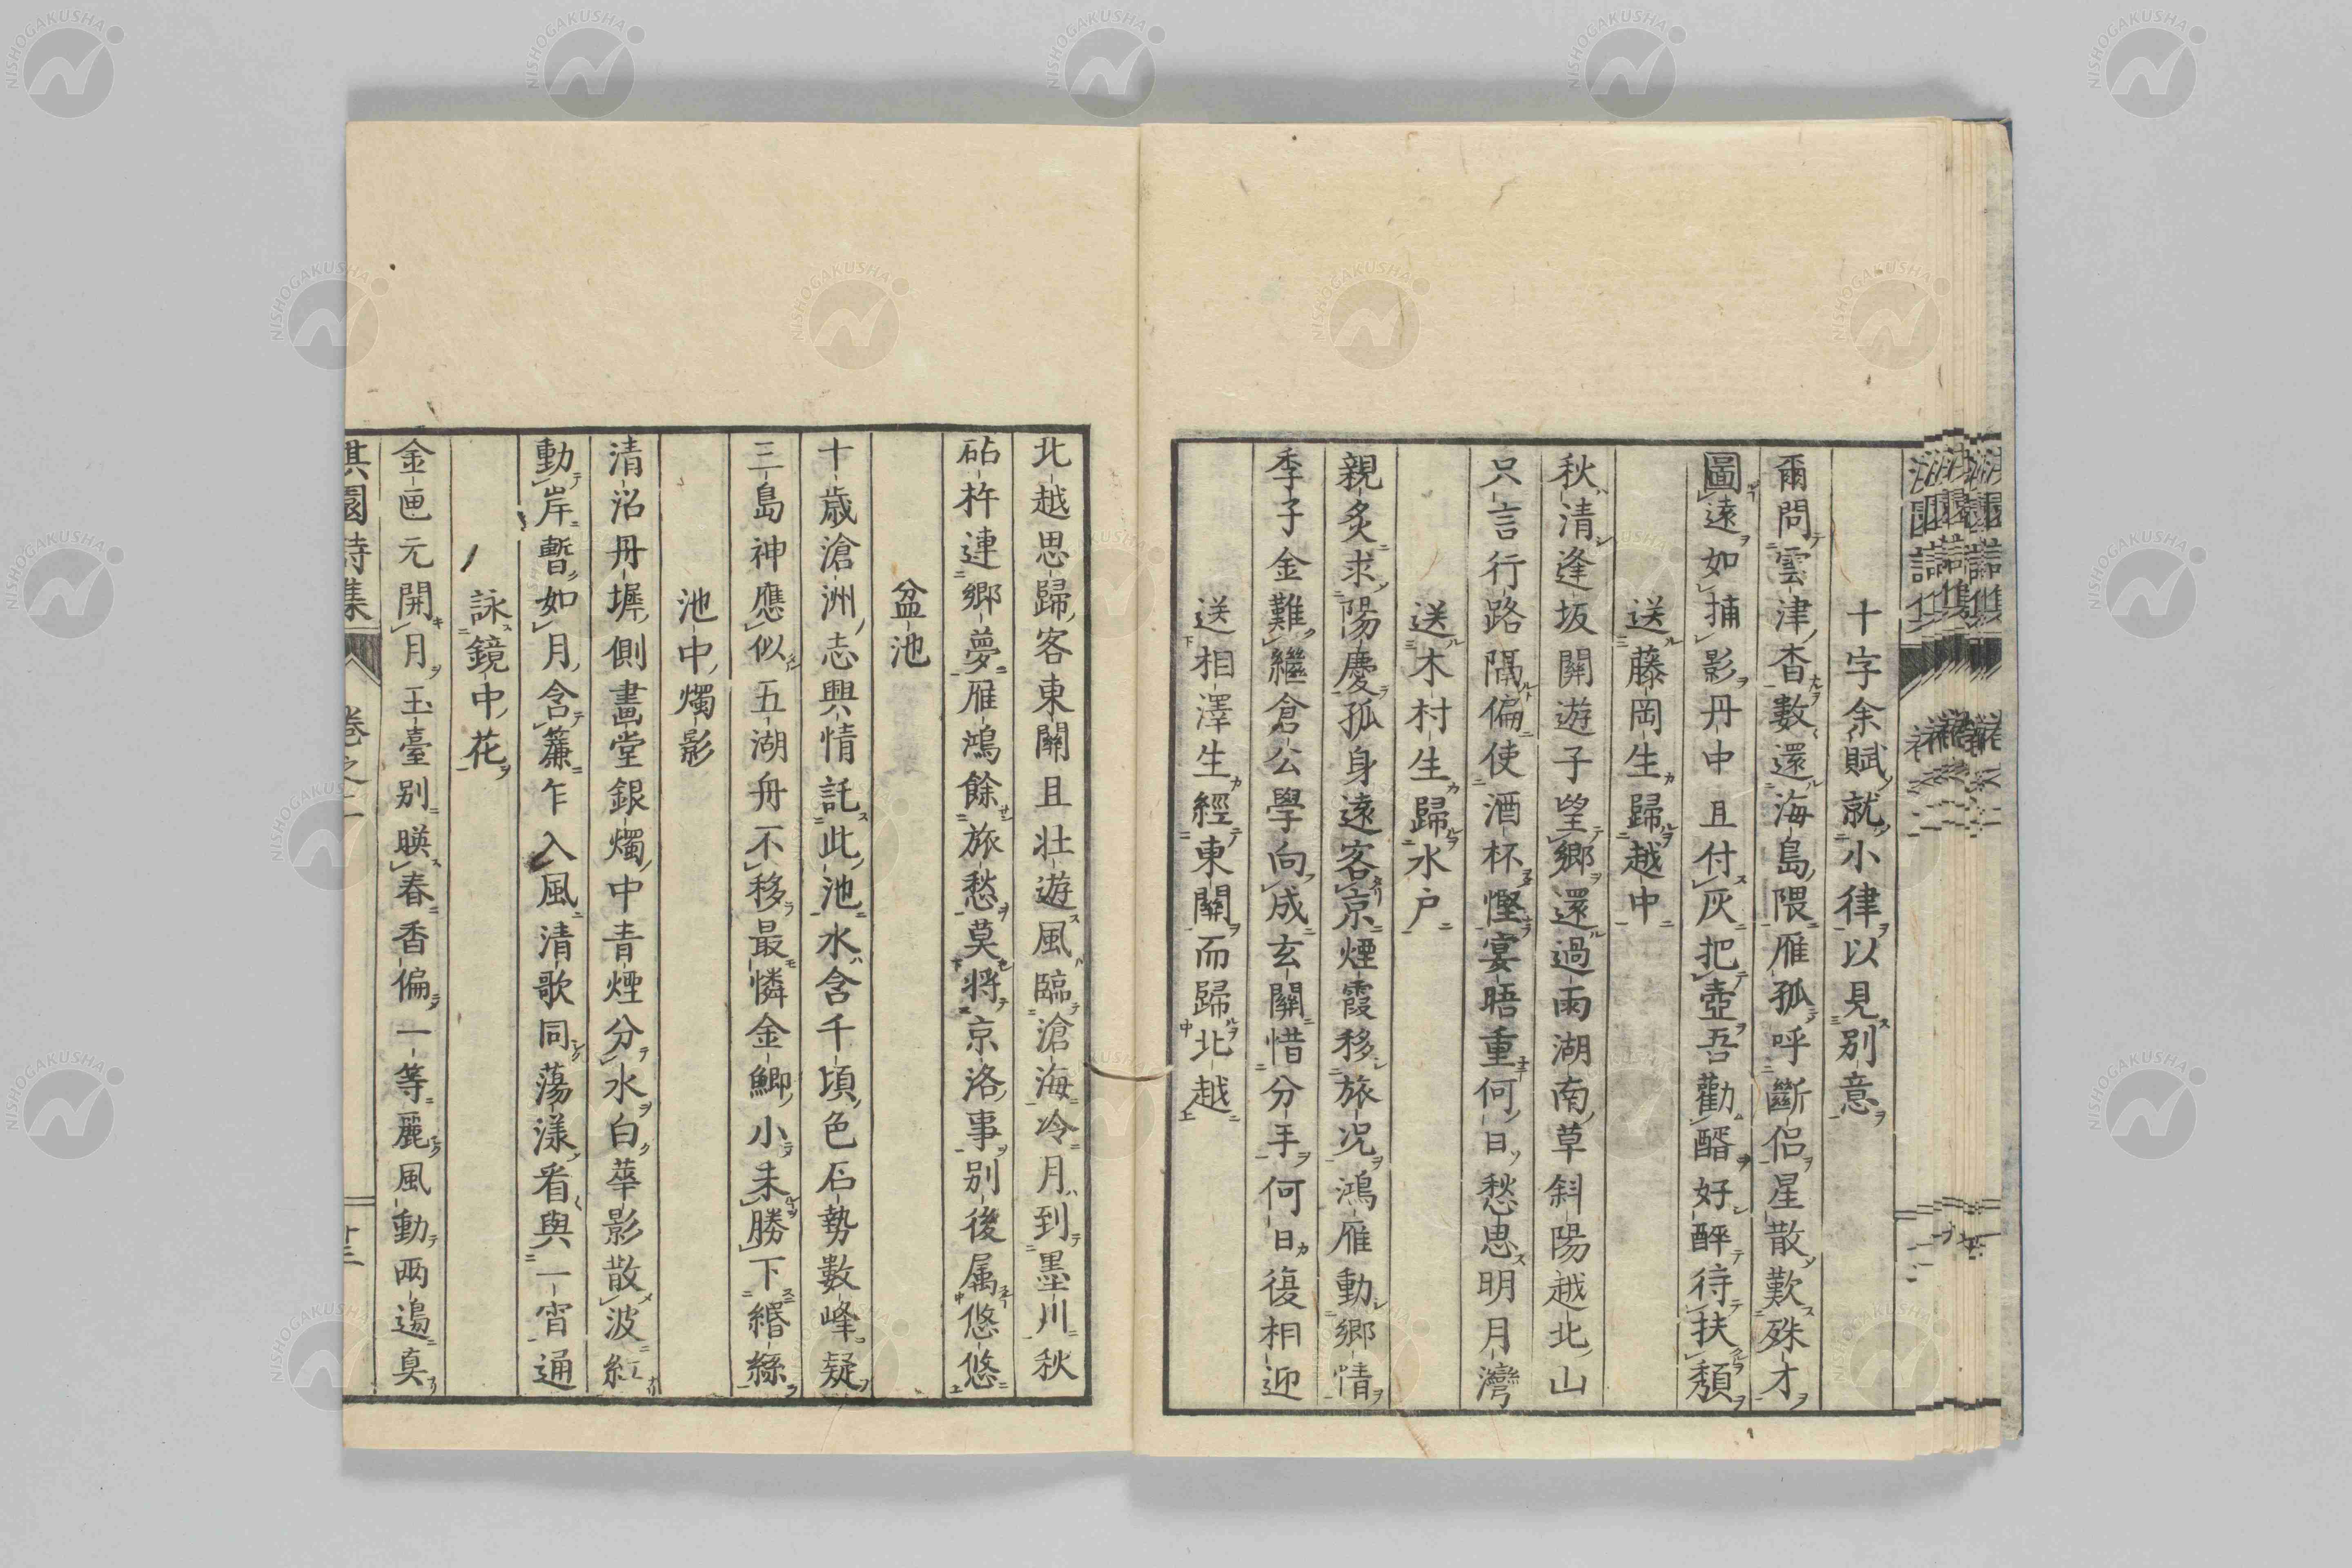 十字余賦就小律以見別意
爾問雲津杳數還海島隈雁孤呼斷侶星散歎殊才
圖遠如捕影丹中且付灰把壺吾勸醑好醉待扶頽
送藤岡生歸越中
秋清逢坂關遊子望鄉還過雨湖南草斜陽越北山
只言行路隔偏使酒杯慳宴晤重何日愁思明月灣
送木村生歸水戶
親炙求陽慶孤身遠客京煙霞移旅況鴻雁動鄉情
季子金難繼倉公學向成玄關惜分手何日復相迎
送相澤生經東關而歸北越
北越思歸客東關且壯遊風臨滄海冷月到墨川秋
砧杵連鄉夢雁鴻餘旅愁莫將京洛事別後属悠悠
盆池
十歲滄洲志興情託此池水含千頃色石勢數峰疑
三島神應似五湖舟不移最憐金鯽小未勝下緡絲
池中燭影
清沼丹墀側畫堂銀燭中青煙分水白華影散波紅
動岸暫如月含簾乍入風清歌同蕩漾看與一宵通
詠鏡中花
金匣元開月玉臺別暎春香偏一等麗風動兩邊真
淇園詩集 卷之二